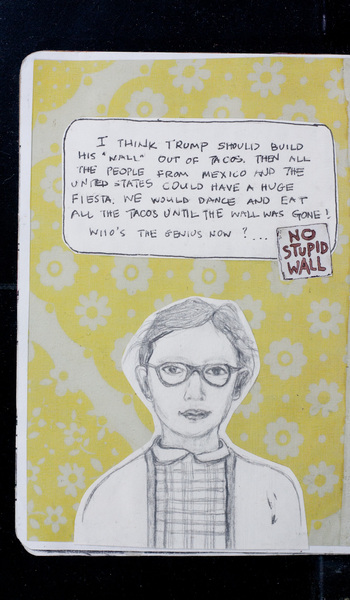 I THINK TRUMP SHOULD BUILD
HIS "WALL" OUT OF TACOS. THEN ALL
THE PEOPLE FROM MEXICO AND THE
UNITED STATES COULD HAVE A HUGE
FIESTA. WE WOULD DANCE AND EAT
ALL THE TACOS UNTIL THE WALL WAS GONE!
WHO'S THE GENIUS NOW?...
NO
STUPID
WALL